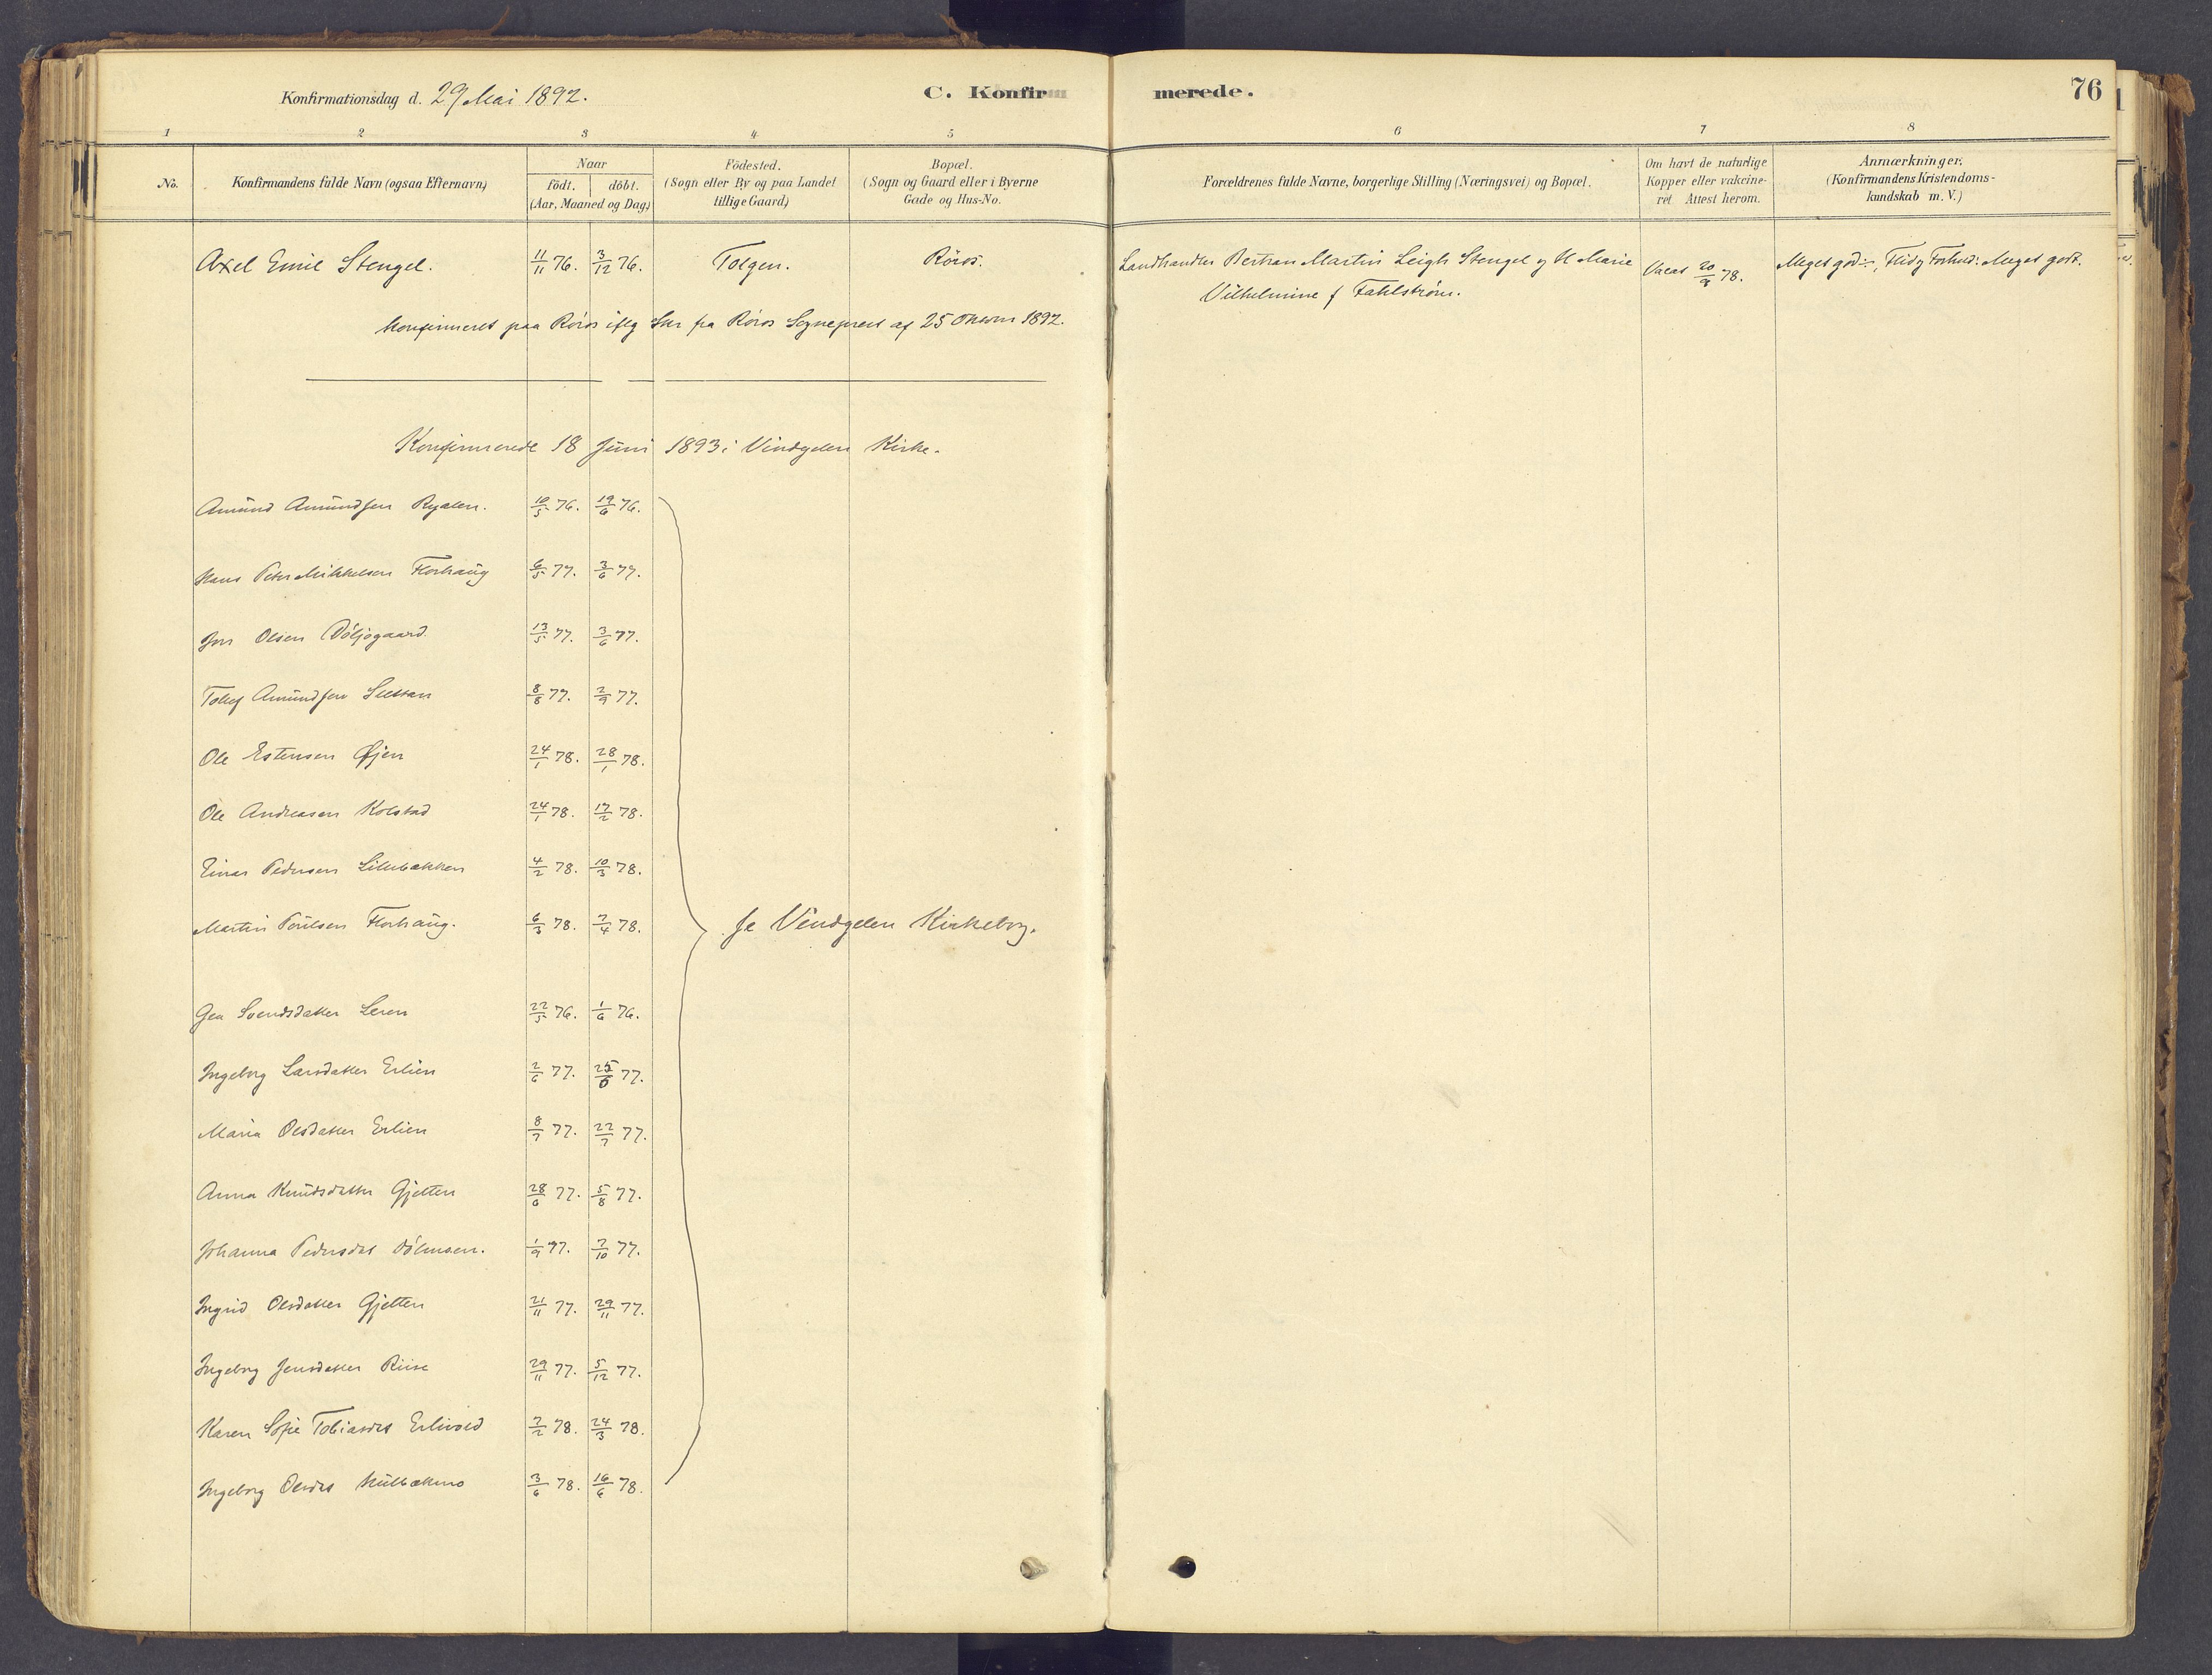 Konfirmationsdag d. 29 Mai 1892.
C. Konfirmerede.
76
1 2 3 4 5 6 7 8
No.
Konfirmandens fulde Navn (ogsaa Efternavn)
Naar
födt. döbt.
(Aar, Maaned og Dag)
Födested.
(Sogn eller By og paa Landet
tillige Gaard)
Bopæl.
(Sogn og Gaard eller i Byerne
Gade og Hus-No.
Forældrenes fulde Navne, borgerlige Stilling (Næringsvei) og Bopæl.
Om havt de naturlige
Kopper eller vakcine-
ret Attest herom.
Anmærkninger.
(Konfirmandens Kristendoms-
kundskab m. V.)
Axel Emil Stengel. 11/11 76. 3/12 76. Tolgen. Röros. Landhandler Bertran Martin Leigh Stengel og H Marie Vacc 20/9 78. Meget god, Flid og Forhold: Meget godt.
Vilhelmine f Fahlström.
Konfirmeret paa Röros iflg Skr fra Röros Sognepræst af 25 Oktober 1892.
Konfirmerede 18 Juni 1893 i Vindgelen Kirke.
Amund Amundsen Ryalen. 10/5 76. 19/6 76.
Hans Peter Mikkelsen Florhaug 6/5 77. 3/6 77.
Jon Olsen Döljogaard. 13/5 77. 3/6 77.
Tollef Amundsen 8/8 77. 2/9 77.
Ole Estensen Øjen 24/1 78. 28/1 78.
Ole Andreasen Kolstad 24/1 78. 17/2 78.
Einar Pedersen Lillebakken 4/2 78. 10/3 78.
Martin Poulsen Florhaug. 6/3 78. 7/4 78.
Se Vindgelen Kirkebog.
Gea Svendsdatter Leren 22/5 76. 1/6 76.
Ingeborg Larsdatter Erlien 2/6 77. 77.
Maria Olsdatter Erlien 8/7 77. 22/7 77.
Anna Knudsdatter Gjelten 28/6 77. 5/8 77.
Johanna Pedersdat Dölmoen. 1/9 77. 7/10 77.
Ingrid Olsdatter Gjelten 21/11 77. 29/11 77.
Ingeborg Jensdatter Riise 29/11 77. 5/12 77.
Karen Sofie Tobiasdat Erlivold 7/2 78. 24/3 78.
Ingeborg Olsdat 3/6 78. 16/6 78.